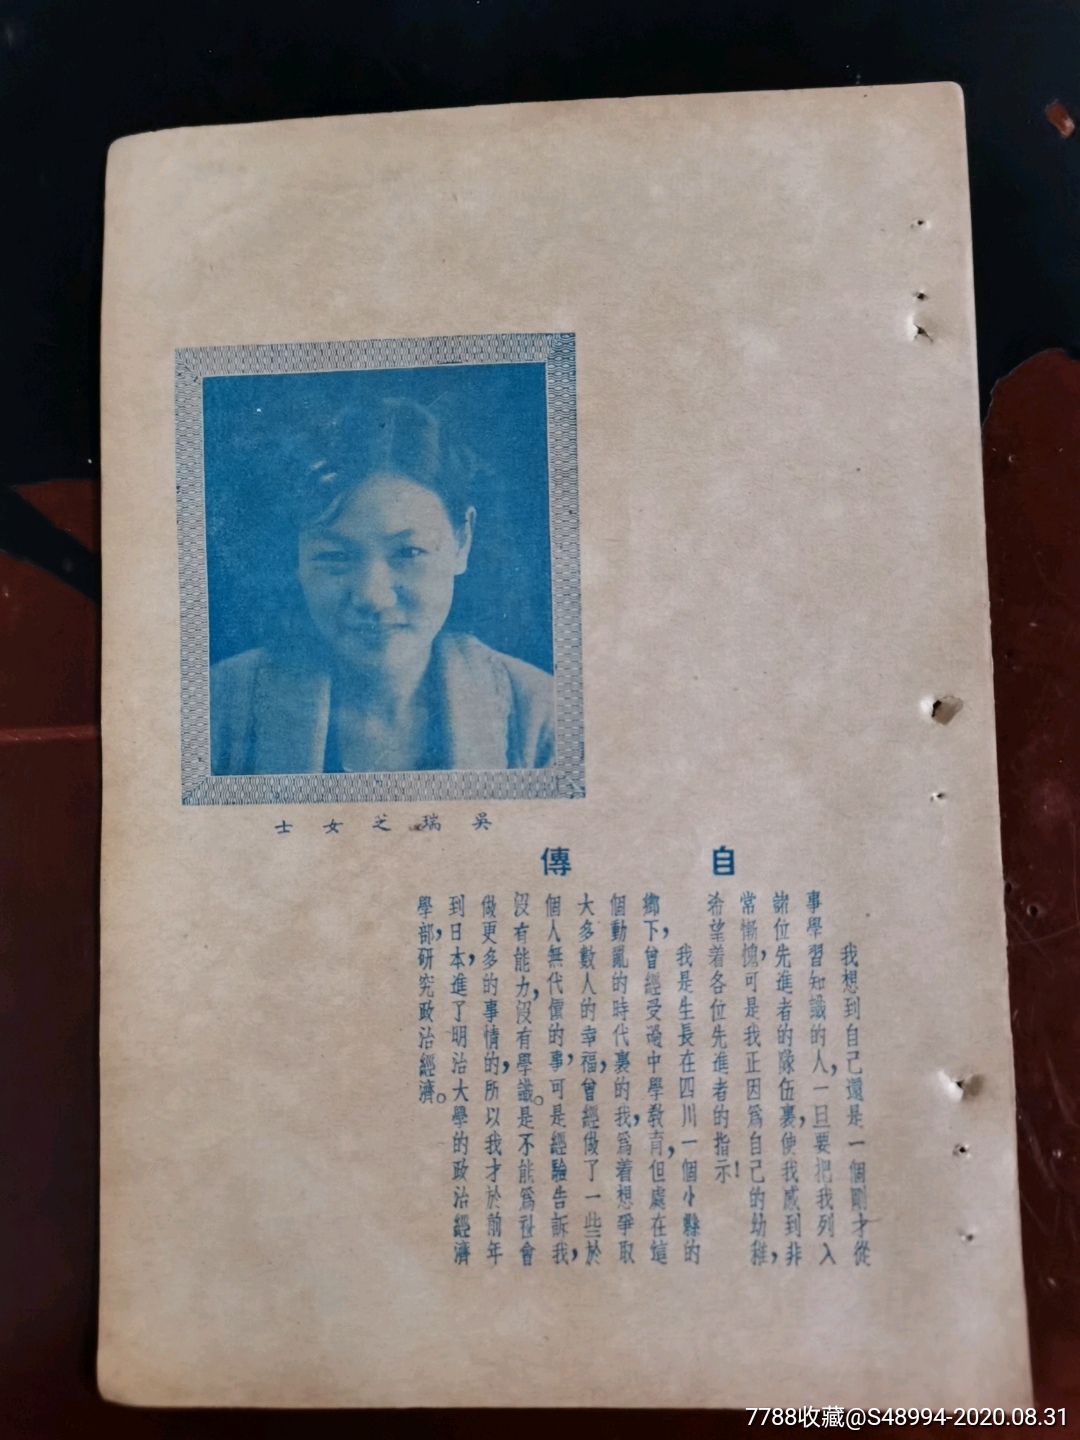 吳瑞芝女士
自傳
我想到自己還是一個剛才從
事學習知識的人，一旦要把我列入
諸位先進者的隊伍裏，使我感到非
常慚愧，可是我正因爲自己的幼稚，
希望着各位先進者的指示！
我是生長在四川一個小縣的
鄉下，曾經受過中學敎育，但處在這
個動亂的時代裏的我，爲着想爭取
大多數人的幸福，曾經做了一些於
個人無代價的事，可是經驗告訴我，
沒有能力，沒有學識。是不能爲社會
做更多的事情的，所以我才於前年
到日本，進了明治大學的政治經濟
學部，研究政治經濟。
7788收藏@S48994-2020.08.31